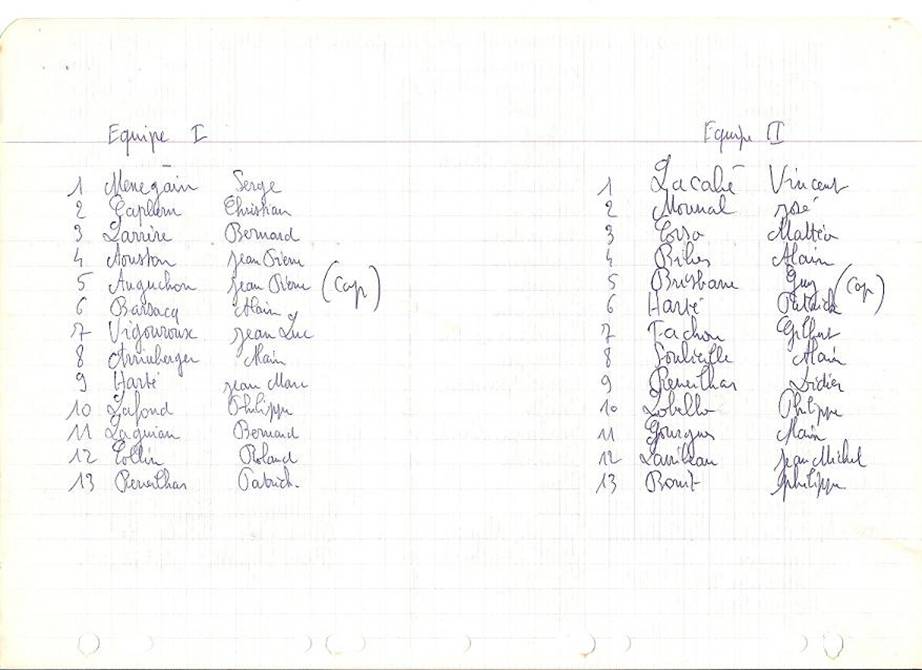 Equipe I
1 Menegain Serge
2 Christian
3 Larrire Bernard
4 Jean Pierre
5 Auguchon Jean Pierre (Cap)
6 Barsacq Alain
7 Vigouroux Jean Luc
8 Alain
9 Harté Jean Marc
10 Lafond Philippe
11 Laguian Bernard
12 Collin Roland
13 Reneithas Patrick
Equipe II
1 Lacabé Vincent
2 José
3 Corso Mattéo
4 Alain
5 Brisbane Guy (Cap)
6 Harté Patrick
7 Tachon Gilbert
8 Alain
9 Reneithas Didier
10 Philippe
11 Gourgues Alain
12 Jean Michel
13 philippe